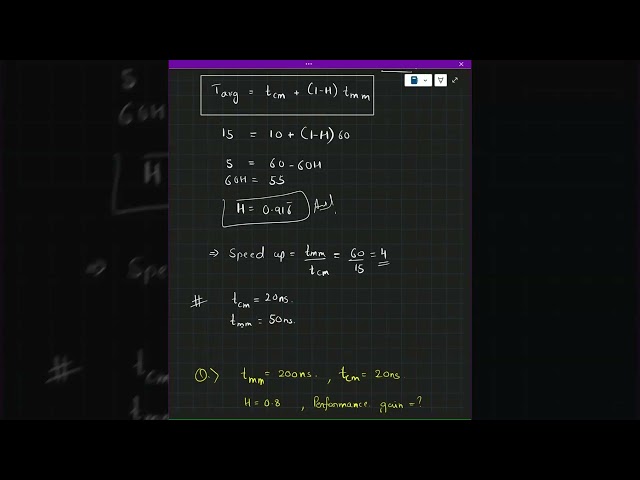 Tavg = tcm + (1-H) tmm
15 = 10 + (1-H) 60
5 = 60 - 60H
60H = 55
H = 0.916̅ Ans.
⇒ Speed up = tmm/tcm = 60/15 = 4
# tcm = 20ns.
tmm = 50ns.
①.> tmm = 200ns. , tcm = 20ns
H = 0.8 , Performance gain = ?
5
60H
H
⇒ Spe
# tcm
tmm